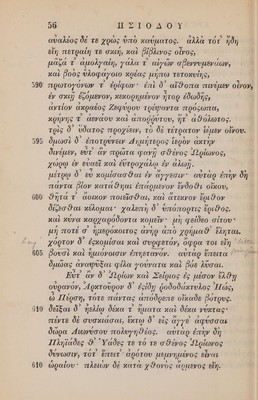 56 ΗΣΙΟΔΟΥ
αὐαλέος δέ τε χρὼς ὑπὸ καύματος. ἀλλὰ τότ' ἤδη
εἴη πετραίη τε σκιή, καὶ βίβλινος οἶνος,
μᾶζά τ' ἀμολγαίη, γάλα τ' αἰγῶν σβεννυμενάων,
καὶ βοὸς ὑλοφάγοιο κρέας μήπω τετοκυίης,
590 πρωτογόνων τ' ἐρίφων· ἐπὶ δ' αἴθοπα πινέμεν οἶνον,
ἐν σκιῇ ἑζόμενον, κεκορημένον ἦτορ ἐδωδῆς,
ἀντίον ἀκραέος Ζεφύρου τρέψαντα πρόσωπα,
κρήνης τ' αενάου καὶ ἀποῤῥύτου, ἥτ' ἀθόλωτος.
τρὶς δ' ὕδατος προχέειν, τὸ δὲ τέτρατον ἱέμεν οἴνου.
595 δμωσὶ δ' ἐποτρύνειν Δημήτερος ἱερὸν ἀκτὴν
δινέμεν, εὖτ' ἂν πρῶτα φανῇ σθένος Ὠρίωνος,
χώρῳ ἐν εὐαεῖ καὶ ἐϋτροχάλῳ ἐν ἀλωῇ.
μέτρῳ δ' εὖ κομίσασθαι ἐν ἄγγεσιν· αὐτὰρ ἐπὴν δὴ
πάντα βίον κατάθηαι ἐπάρμενον ἔνδοθι οἴκου,
600 θῆτά τ' ἄοικον ποιεῖσθαι, καὶ ἄτεκνον ἔριθον
δίζεσθαι κέλομαι· χαλεπὴ δ' ὑπόπορτις ἔριθος.
καὶ κύνα καρχαρόδοντα κομεῖν· μὴ φείδεο σίτου·
μή ποτέ σ' ἡμερόκοιτος ἀνὴρ ἀπὸ χρήμαθ' ἕληται.
χόρτον δ' ἐςκομίσαι καὶ συρφετόν, ὄφρα τοι εἴη
605 βουσὶ καὶ ἡμιόνοισιν ἐπηετανόν. αὐτὰρ ἔπειτα
δμῶας ἀναψῦξαι φίλα γούνατα καὶ βόε λῦσαι.
Εὖτ' ἂν δ' Ὠρίων καὶ Σείριος ἐς μέσον ἔλθῃ
οὐρανόν, Ἀρκτοῦρον δ' ἐσίδῃ ῥοδοδάκτυλος Ἠώς,
ὦ Πέρση, τότε πάντας ἀπόδρεπε οἴκαδε βότρυς.
610 δεῖξαι δ' ἠελίῳ δέκα τ' ἤματα καὶ δέκα νύκτας·
πέντε δὲ συσκιάσαι, ἕκτῳ δ' εἰς ἄγγε' ἀφύσσαι
δῶρα Διωνύσου πολυγηθέος. αὐτὰρ ἐπὴν δὴ
Πληϊάδες θ' Ὑάδες τε τό τε σθένος Ὠρίωνος
δύνωσιν, τότ' ἔπειτ' ἀρότου μεμνημένος εἶναι
610 ὡραίου· πλειὼν δὲ κατὰ χθονὸς ἄρμενος εἴη.